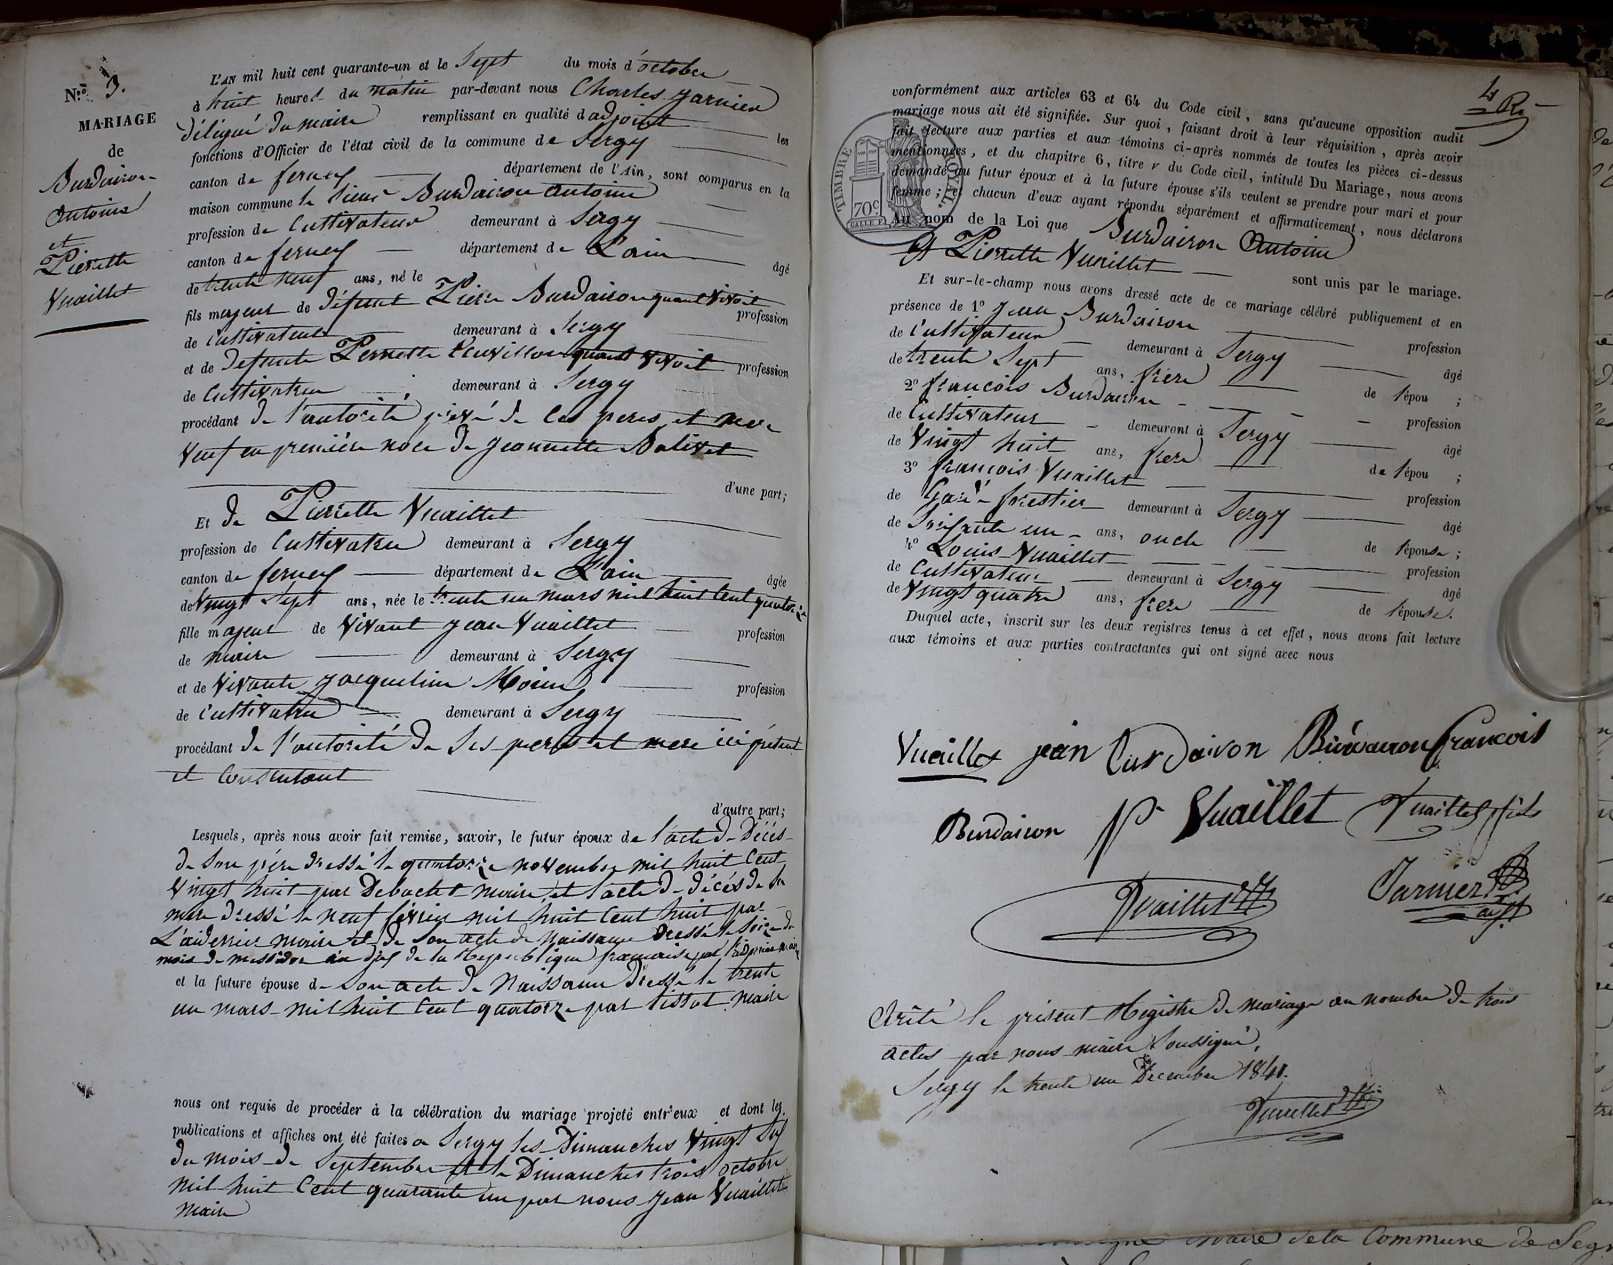 N.º 3.
MARIAGE
de
Burdairon
Antoine
et
Pierrette
Vuaillet
L'AN mil huit cent quarante-un et le Sept du mois d'octobre
à huit heures du matin par-devant nous Charles Jarnier
délégué du maire remplissant en qualité d'adjoint les
fonctions d'Officier de l'état civil de la commune de Sergy
canton de ferney département de l'Ain, sont comparus en la
maison commune le Sieur Burdairon Antoine
profession de Cultivateur demeurant à Sergy
canton de ferney département de L'ain âgé
de trente neuf ans, né le
fils majeur de défunt Pierre Burdairon quant vivoit profession
de Cultivateur demeurant à Sergy
et de defunte Pernette quant vivoit profession
de Cultivatrice demeurant à Sergy
procédant de l'autorité privé de ces peres et mere
Veuf en première noce de Jeannette
d'une part;
Et de Pierrette Vuaillet
profession de Cultivatrice demeurant à Sergy
canton de ferney département de L'ain âgée
de Vingt Sept ans, née le trente un mars mil huit Cent quatorze
fille majeur de Vivant Jean Vuaillet profession
de maire demeurant à Sergy
et de Vivante Jacqueline profession
de Cultivatrice demeurant à Sergy
procédant de l'autorité de Ses peres et mere ici présent
et Consentant
d'autre part;
Lesquels, après nous avoir fait remise, savoir, le futur époux de l'acte de Décès
de Son père dressé le quatorze novembre mil huit Cent
Vingt huit par Debachet maire, et l'acte de décès de Sa
mere dressé le neuf février mil huit Cent huit par
L'aidevier maire et de Son acte de Naissance Dressé le Seize du
mois de messidor an dix de la Republique francaise par maire
et la future épouse de Son acte de Naissance Dressé le trente
un mars mil huit Cent quatorze par tissot maire
nous ont requis de procéder à la célébration du mariage projeté entr'eux et dont les
publications et affiches ont été faites a Sergy les Dimanches Vingt Six
du mois de Septembre et le Dimanches trois octobre
mil huit Cent quarante un par nous Jean Vuaillet
maire
4
conformément aux articles 63 et 64 du Code civil, sans qu'aucune opposition audit
mariage nous ait été signifiée. Sur quoi, faisant droit à leur réquisition, après avoir
fait lecture aux parties et aux témoins ci-après nommés de toutes les pièces ci-dessus
mentionnées, et du chapitre 6, titre v du Code civil, intitulé Du Mariage, nous avons
demandé au futur époux et à la future épouse s'ils veulent se prendre pour mari et pour
femme; et chacun d'eux ayant répondu séparément et affirmativement, nous déclarons
Au nom de la Loi que Burdairon Antoine
Et Pierrette Vuaillet sont unis par le mariage.
TIMBRE ROYAL
70c
Et sur-le-champ nous avons dressé acte de ce mariage célébré publiquement et en
présence de 1º Jean Burdairon profession
de Cultivateur demeurant à Sergy âgé
de trente Sept ans, frere de l'épou ;
2º francois Burdairon profession
de Cultivateur demeurant à Sergy âgé
de Vingt huit ans, frere de l'épou ;
3º françois Vuaillet profession
de Gard forestier demeurant à Sergy âgé
de Soixante un ans, oncle de l'épouse ;
4º Louis Vuaillet profession
de Cultivateur demeurant à Sergy âgé
de Vingt quatre ans, frere de l'épouse.
Duquel acte, inscrit sur les deux registres tenus à cet effet, nous avons fait lecture
aux témoins et aux parties contractantes qui ont signé avec nous
Vuaillet jean Burdairon Burdairon francois
Burdairon Vuaillet Vuaillet fils
Vuaillet Jarnier adjt
Arêté le présent Registre de mariage au nombre de trois
actes par nous maire Soussigné,
Sergy le trente un Decembre 1841.
Vuaillet
maire de la Commune de